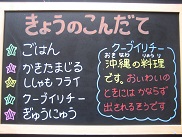 きょうのこんだて
ごはん
かきたまじる
ししゃもフライ
クーブイリチー
ぎゅうにゅう
クーブイリチー
おきなわ りょうり
沖縄の料理
です。おいわいの
ときには かならず
出されるそうです